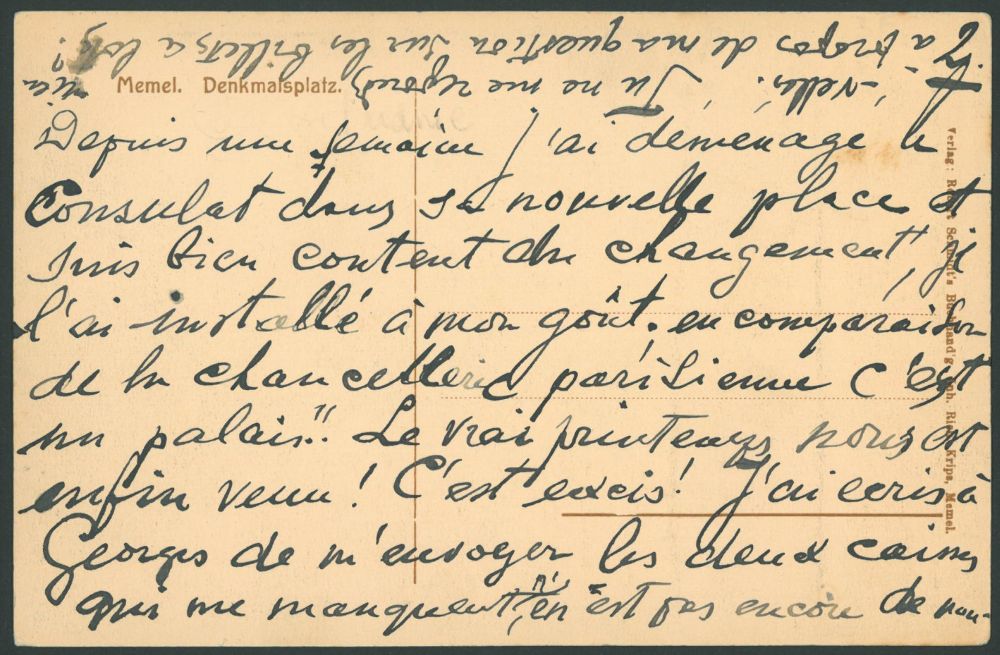 2/.
Memel. Denkmalsplatz.
Depuis une semaine j'ai déménagé le
Consulat dans sa nouvelle place et
suis bien content du changement, je
l'ai installé à mon goût. en comparaison
de la chancellerie parisienne c'est
un palais"! Le vrai printemps nous est
enfin venu! C'est excis! J'ai ecris à
Georges de m'envoyer les deux caisses
qui me manquent, n'en est pas encore de nou-
-velles. Tu ne me reponds rien
à propos de ma question sur les billets à lots?
Verlag: Robert Schmidt's Buchhandlg. Inh. Rich. Krips, Memel.